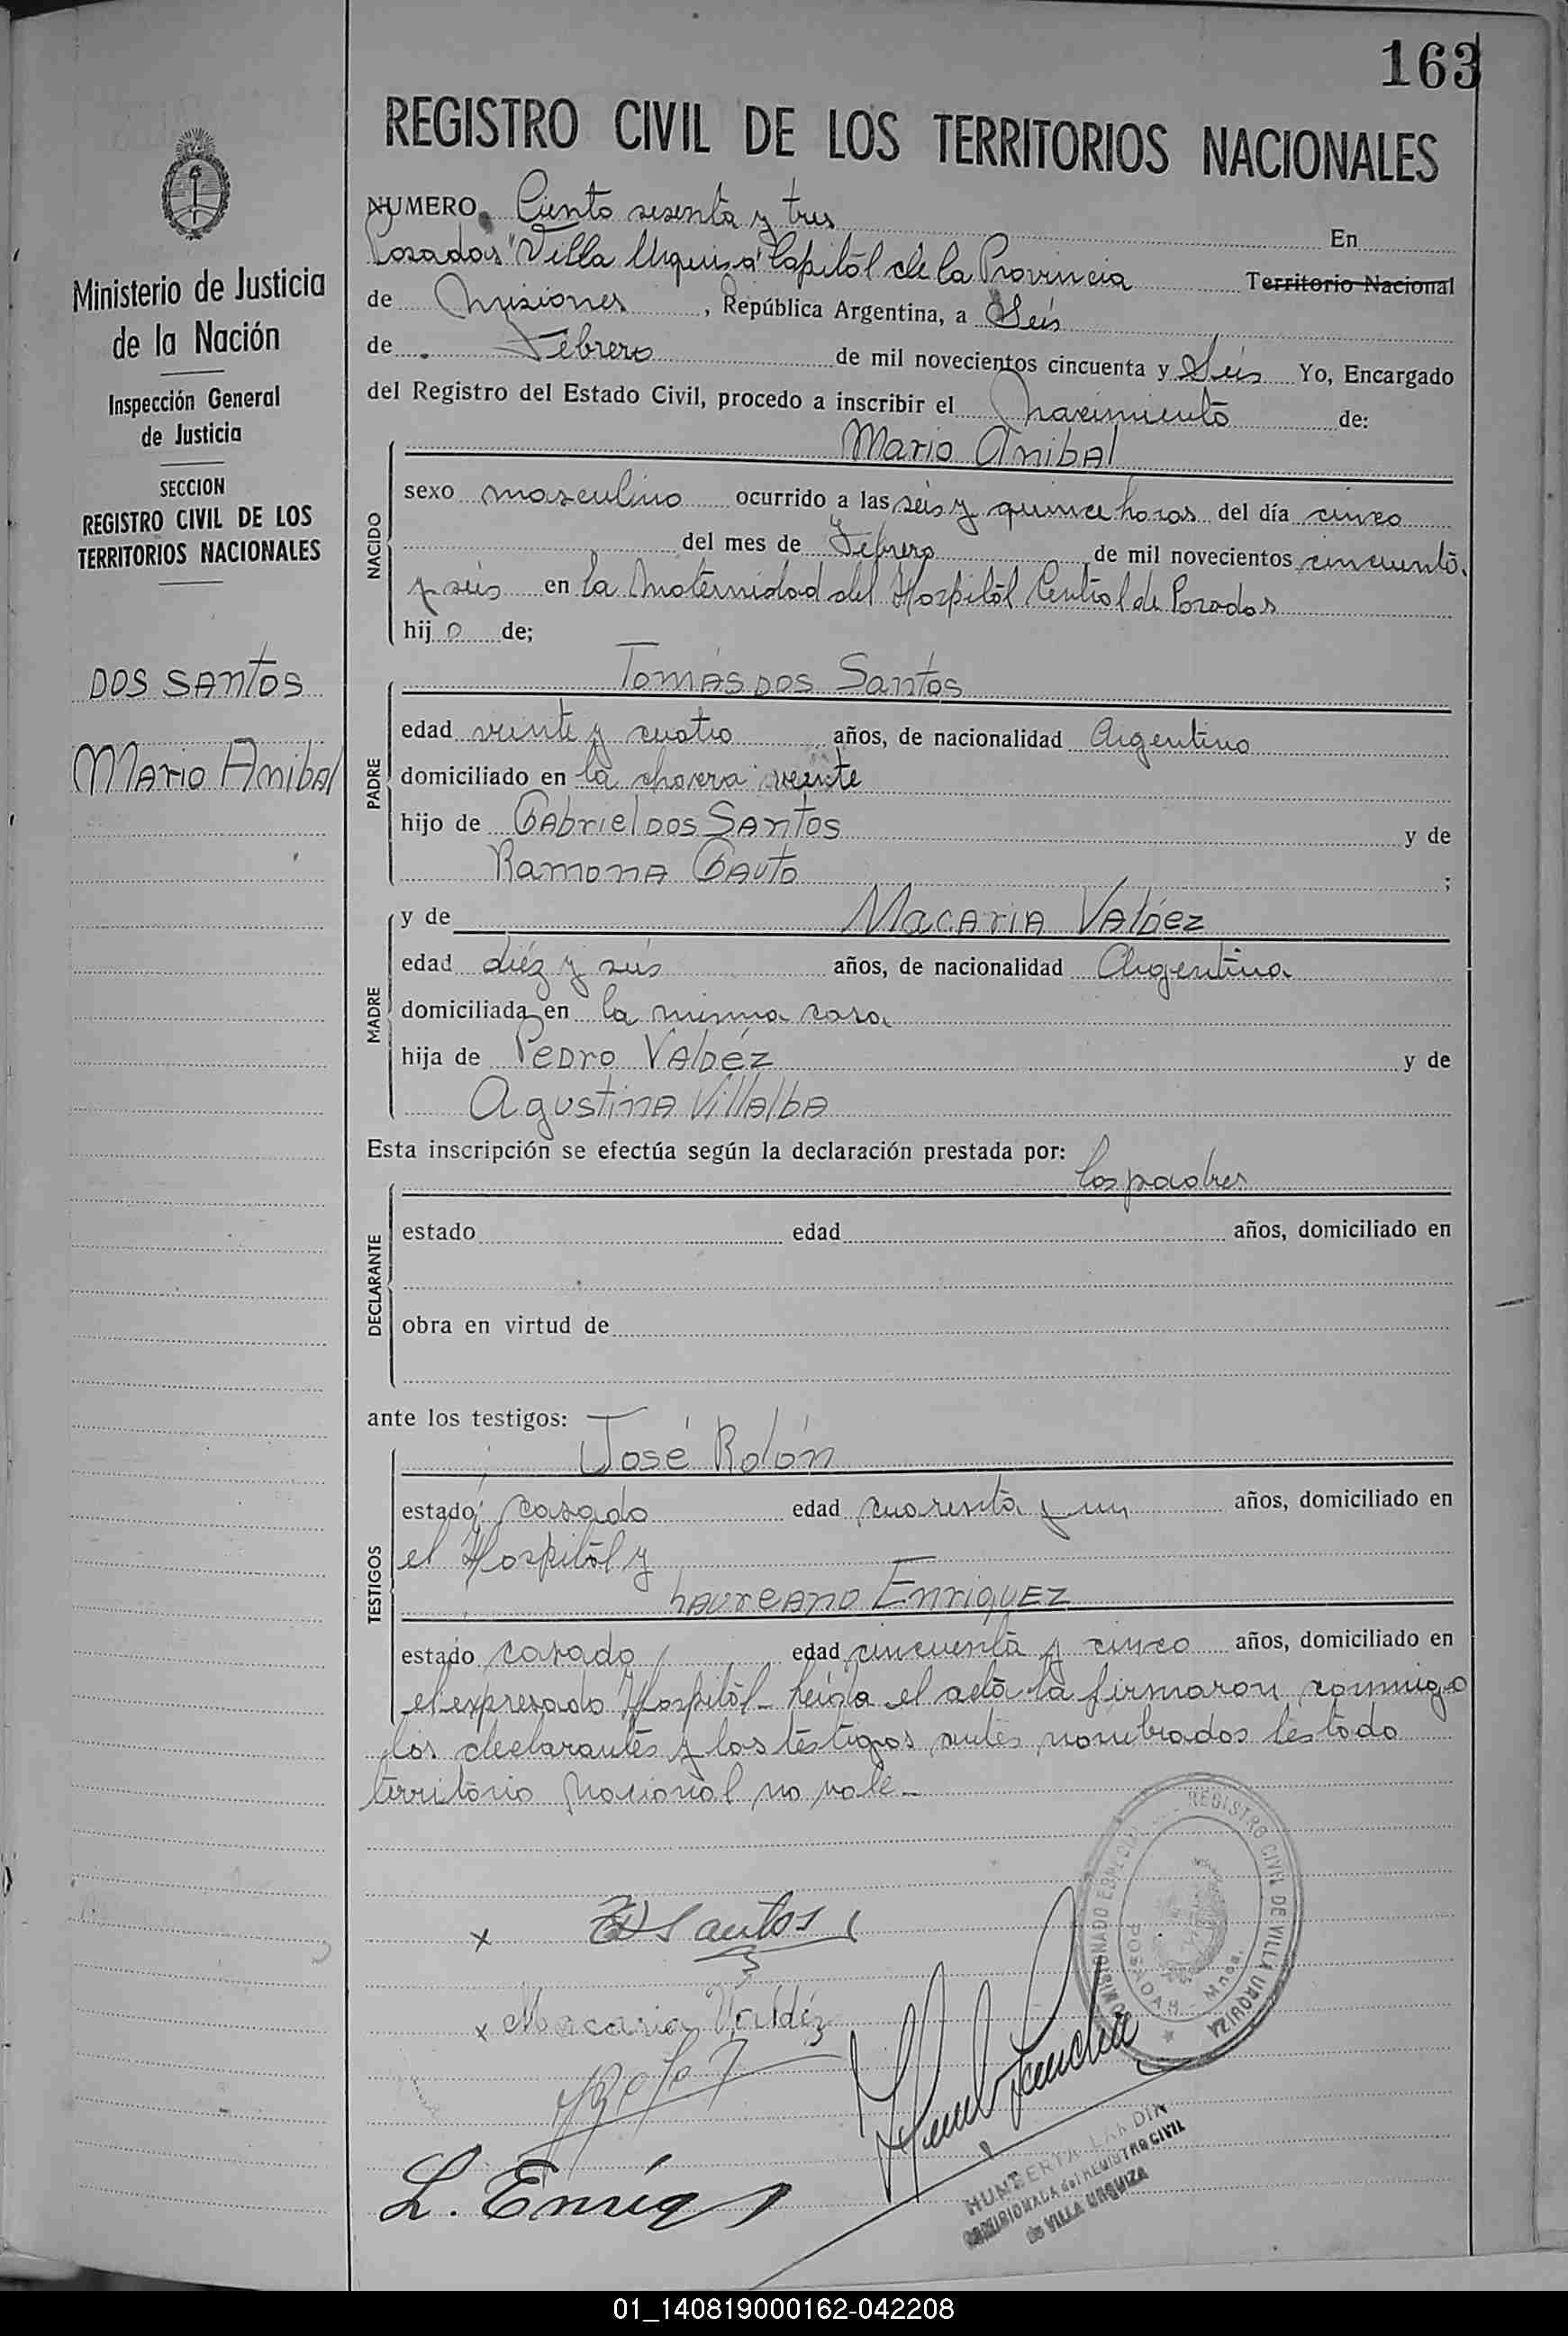 163
REGISTRO CIVIL DE LOS TERRITORIOS NACIONALES
Ministerio de Justicia
de la Nación
Inspección General
de Justicia
SECCION
REGISTRO CIVIL DE LOS
TERRITORIOS NACIONALES
DOS SANTOS
Mario Anibal
NUMERO Ciento sesenta y tres En
Posadas "Villa Urquiza" Capital de la Provincia Territorio Nacional
de Misiones, República Argentina, a Seis
de Febrero de mil novecientos cincuenta y Seis Yo, Encargado
del Registro del Estado Civil, procedo a inscribir el Nacimiento de:
NACIDO
Mario Anibal
sexo masculino ocurrido a las seis y quince horas del día cinco
del mes de Febrero de mil novecientos cincuenta
y seis en la Maternidad del Hospital Central de Posadas
hijo de;
PADRE
Tomás Dos Santos
edad veinte y cuatro años, de nacionalidad Argentino
domiciliado en la chacra veinte
hijo de Gabriel Dos Santos y de
Ramona Gauto ;
MADRE
y de Macaria Valdez
edad diéz y seis años, de nacionalidad Argentina
domiciliada en la misma casa
hija de Pedro Valdéz y de
Agustina Villalba
Esta inscripción se efectúa según la declaración prestada por:
los padres
DECLARANTE
estado edad años, domiciliado en
obra en virtud de
ante los testigos:
TESTIGOS
José Rolón
estado casado edad cuarenta y un años, domiciliado en
el Hospital y
Laureano Enriquez
estado casado edad cincuenta y cinco años, domiciliado en
el expresado Hospital - Leida el acta la firmaron conmigo
los declarantes y los testigos antes nombrados Testado
territorio Nacional no vale -
x Santos
x Macaria Valdéz
L. Enriq
REGISTRO CIVIL DE VILLA URQUIZA
POSADAS - Mnes.
HUMBERTA LANDIN
COMISIONADA del REGISTRO CIVIL
de VILLA URQUIZA
01_140819000162-042208